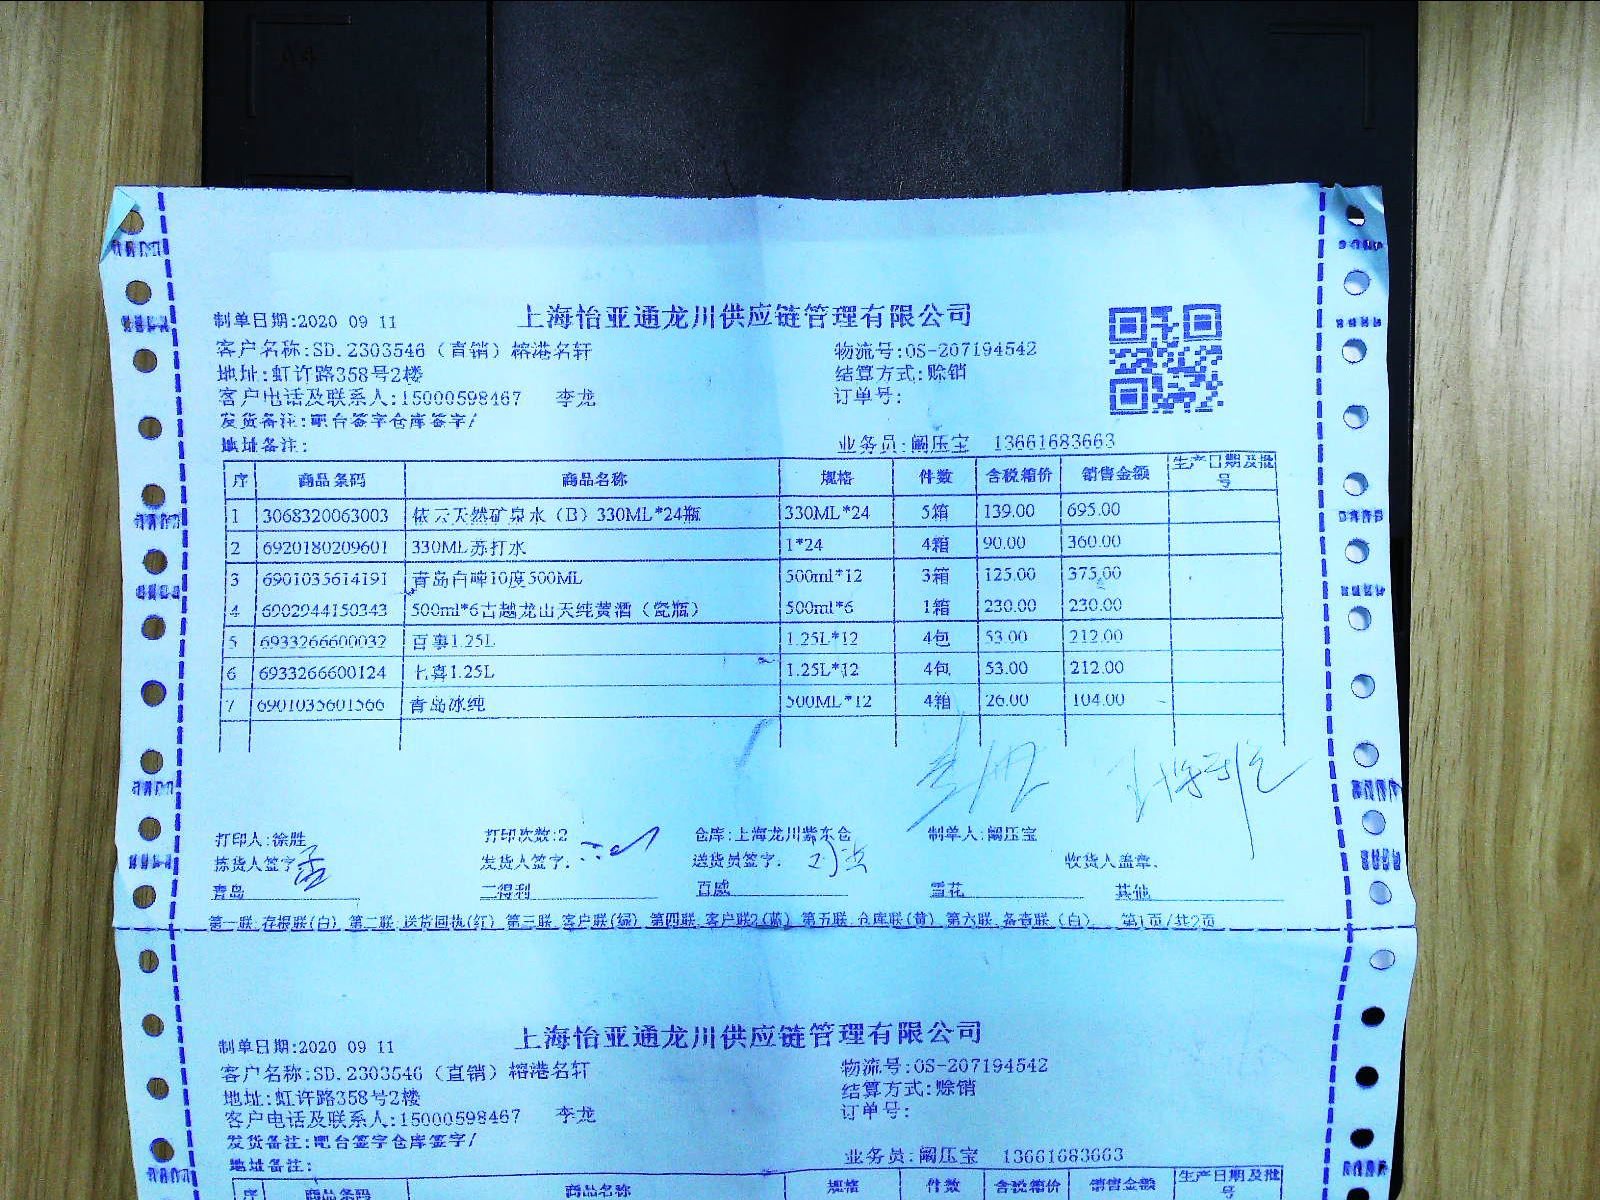 上海怡亚通龙川供应链管理有限公司
制单日期:2020 09 11
客户名称:SD.2303546（直销）榕港名轩
物流号:OS-207194542
地址:虹许路358号2楼
结算方式:赊销
客户电话及联系人:15000598467 李龙
订单号:
发货备注:吧台签字仓库签字/
地址备注:
业务员:阚压宝 13661683663
序 商品条码 商品名称 规格 件数 含税箱价 销售金额 生产日期及批号
1 3068320063003 依云天然矿泉水（B）330ML*24瓶 330ML*24 5箱 139.00 695.00
2 6920180209601 330ML苏打水 1*24 4箱 90.00 360.00
3 6901035614191 青岛白啤10度500ML 500ml*12 3箱 125.00 375.00
4 6902944150343 500ml*6古越龙山天纯黄酒（瓷瓶） 500ml*6 1箱 230.00 230.00
5 6933266600032 百事1.25L 1.25L*12 4包 53.00 212.00
6 6933266600124 七喜1.25L 1.25L*12 4包 53.00 212.00
7 6901035601566 青岛冰纯 500ML*12 4箱 26.00 104.00
打印人:徐胜 打印次数:2 仓库:上海龙川紫东仓 制单人:阚压宝
拣货人签字: 发货人签字: 送货员签字: 收货人盖章:
青岛 三得利 百威 雪花 其他
第一联:存根联(白) 第二联:送货回执(红) 第三联:客户联(绿) 第四联:客户联2(蓝) 第五联:仓库联(黄) 第六联:备查联(白) 第1页/共2页
上海怡亚通龙川供应链管理有限公司
制单日期:2020 09 11
客户名称:SD.2303546（直销）榕港名轩
物流号:OS-207194542
地址:虹许路358号2楼
结算方式:赊销
客户电话及联系人:15000598467 李龙
订单号:
发货备注:吧台签字仓库签字/
地址备注:
业务员:阚压宝 13661683663
序 商品条码 商品名称 规格 件数 含税箱价 销售金额 生产日期及批号